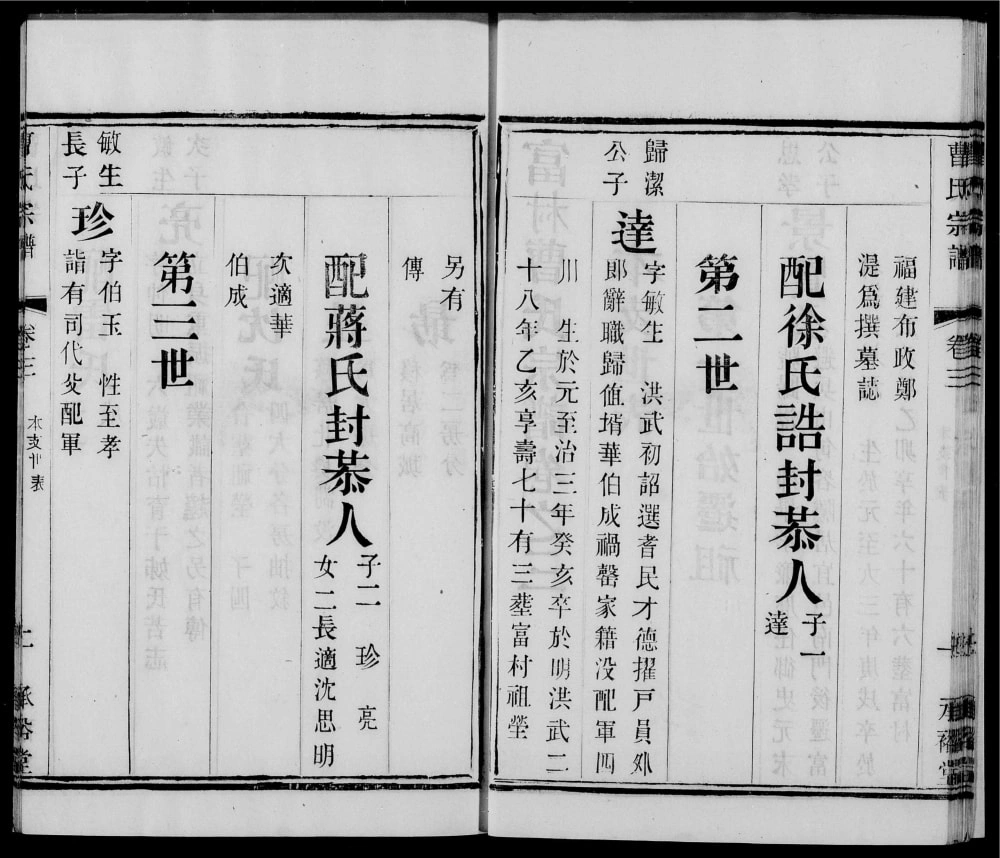 曹氏宗譜
卷三
一
承裕堂
福建布政鄭
湜爲撰墓誌
配徐氏誥封恭人
子一
達
第二世
歸潔
公子
達
字敏生　洪武初詔選耆民才德擢戸員外
郎辭職歸値壻華伯成禍罄家籍没配軍四
川　生於元至治三年癸亥卒於明洪武二
十八年乙亥享壽七十有三塟富村祖塋
另有
傳
配蔣氏封恭人
子二　珍　亮
女二長適沈思明
次適華
伯成
第三世
敏生
長子
珍
字伯玉　性至孝
詣有司代父配軍
曹氏宗譜
卷三
本支世表
二
承裕堂